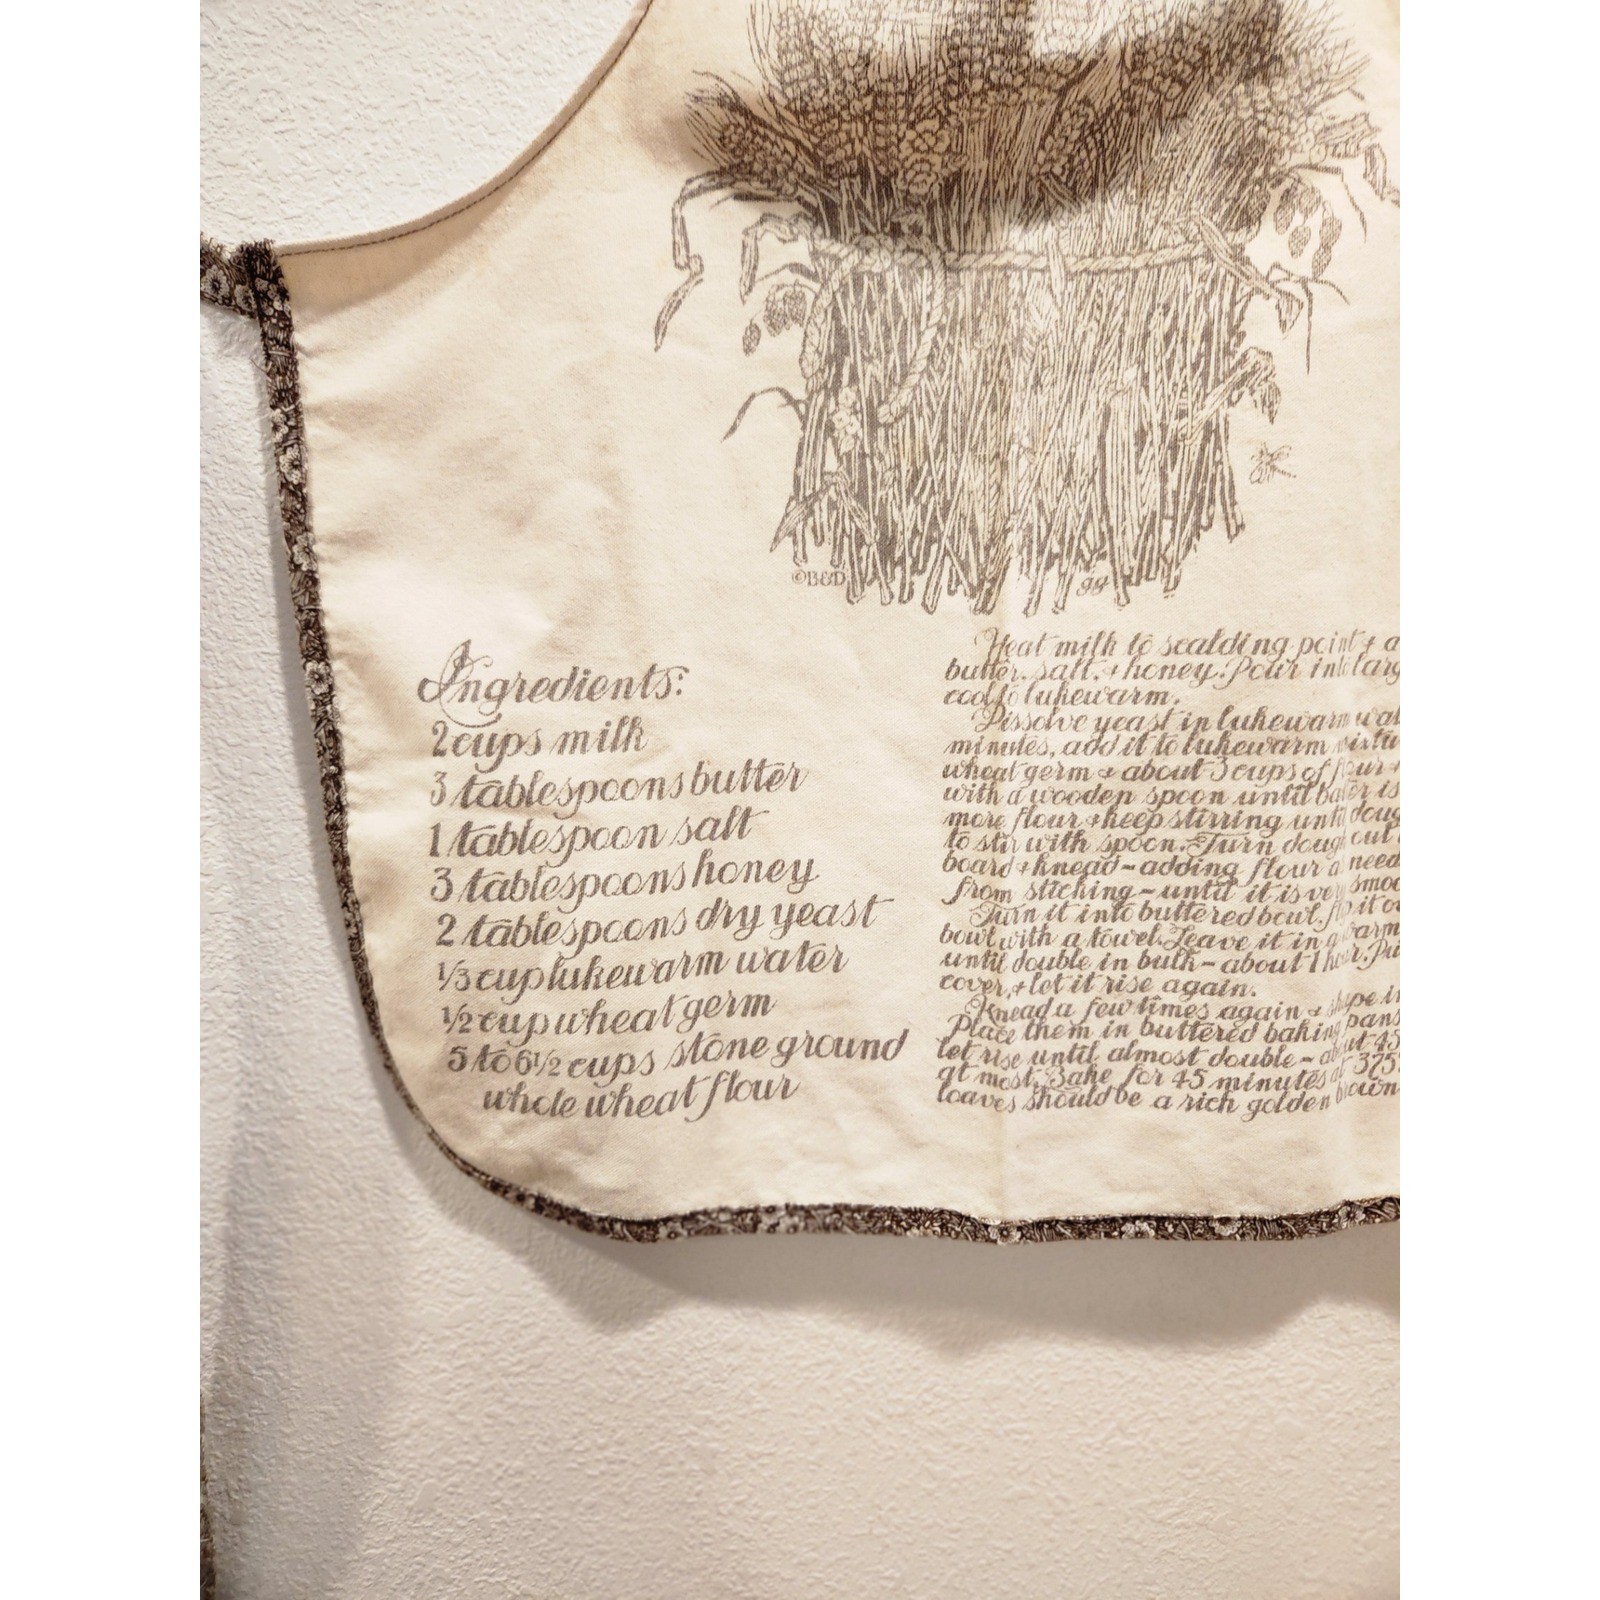 ©B&D
gg
Ingredients:
2 cups milk
3 tablespoons butter
1 tablespoon salt
3 tablespoons honey
2 tablespoons dry yeast
1/3 cup lukewarm water
1/2 cup wheat germ
5 to 6 1/2 cups stone ground
whole wheat flour
Heat milk to scalding point & a
butter, salt, & honey. Pour into larg
cool to lukewarm.
Dissolve yeast in lukewarm wat
minutes, add it to lukewarm mixtu
wheat germ & about 3 cups of flour &
with a wooden spoon until batter is
more flour & keep stirring until doug
to stir with spoon. Turn dough out
board & knead - adding flour a need
from sticking - until it is very smoo
Turn it into buttered bowl, flip it ov
bowl with a towel. Leave it in a warm
until double in bulk - about 1 hour. Pu
cover, & let it rise again.
Knead a few times again & shape in
Place them in buttered baking pans
let rise until almost double - about 45
at most. Bake for 45 minutes at 375°
loaves should be a rich golden brown